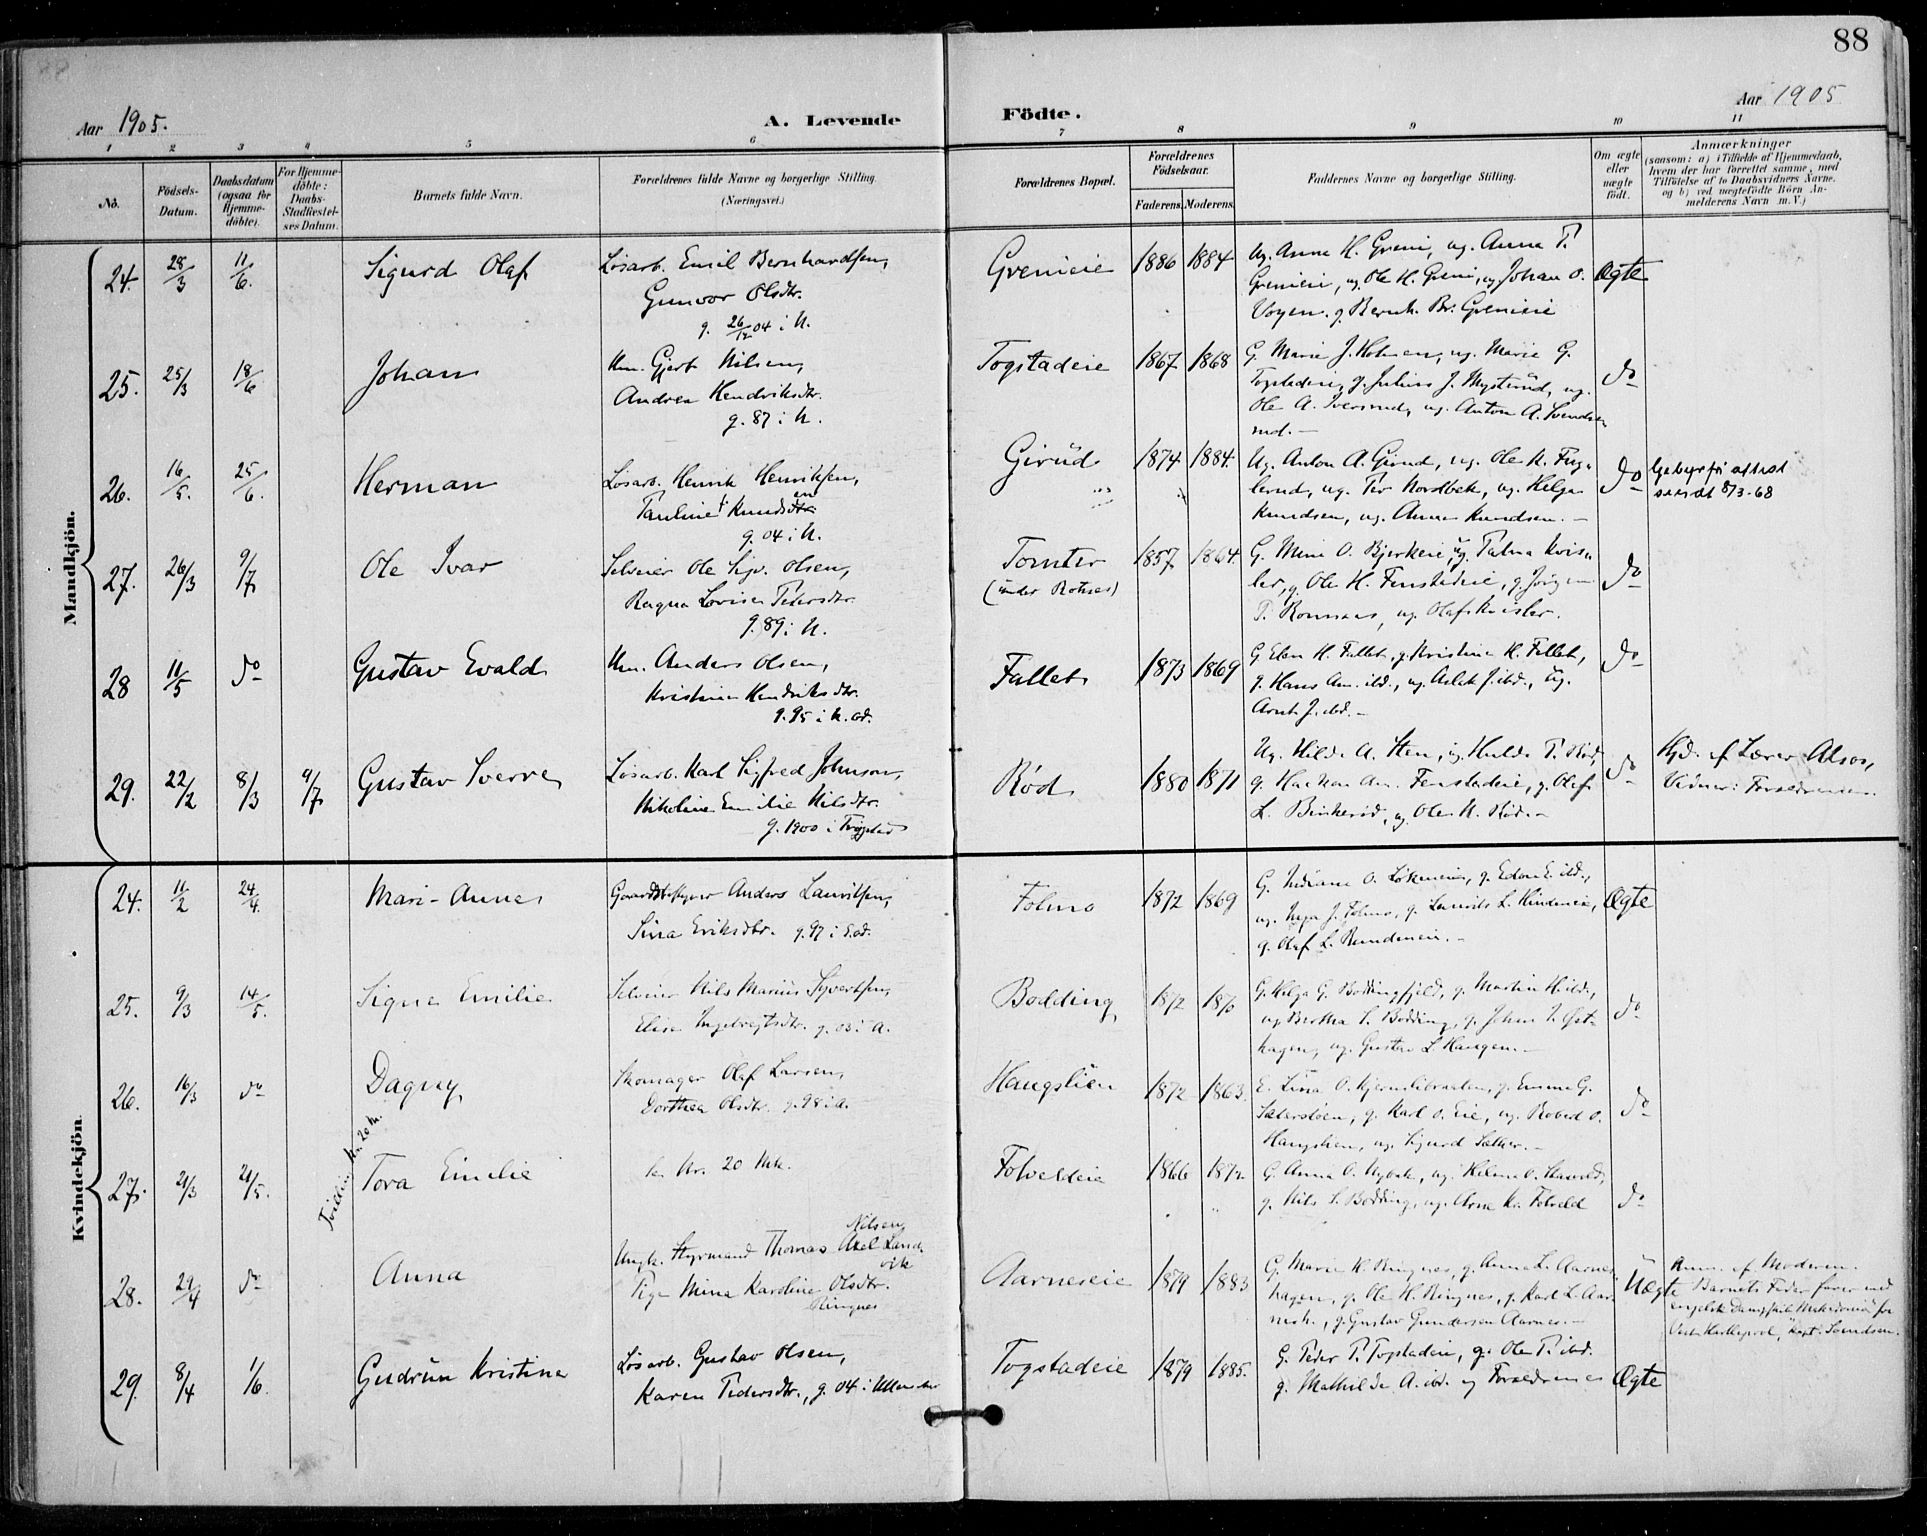 88
Aar 1905.
A. Levende
Födte.
Aar 1905
1 2 3 4 5 6 7 8 9 10 11
No.
Födsels-Datum.
Daabsdatum (ogsaa for Hjemmedöbte).
For Hjemmedöbte: Daabs-Stadfæstelses Datum.
Barnets fulde Navn.
Forældrenes fulde Navne og borgerlige Stilling. (Næringsvei.)
Forældrenes Bopæl.
Forældrenes Födselsaar.
Faderens. Moderens.
Faddernes Navne og borgerlige Stilling.
Om ægte eller uægte födt.
Anmærkninger
(saasom: a) i Tilfælde af Hjemmedaab, hvem der har forrettet samme, med Tilföielse af to Daabsvidners Navne. og b) ved uægtefödte Börn Anmelderens Navn m. V.)
Mandkjön.
24. 28/3 11/6. Sigurd Olaf
Løsarb. Emil Bernhardsen,
Gunvor Olsdtr.
g. 26/12 04 i U.
Grenieie 1886 1884
Ug. Anna H. Greni, ug. Anna T.
Grenieie, ug. Ole H. Greni, ug. Johan O.
g. Bernh. Br. Grenieie
Ægte
25. 25/3 18/6 Johan
Hm. Gjert Nilsen,
Andrea Hendriksdtr.
g. 87 i U.
Togstadeie 1867 1868
G. Marie J. Holmen, ug. Marie G.
Togstadeie, g. Julius J. Mysterud, ug.
Ole A. Iversrud, ug. Anton A. Svends
rud. -
do
26. 16/5. 25/6. Herman
Løsarb. Henrik Henriksen,
Pauline Knudsdtr.
g. 04 i U.
Girud 1874 1884.
Ug. Anton A. Girud, ug. Ole K. Fug
lerud, ug. Per Nordbek, ug. Helga
Knudsen, ug. Anna Knudsen. -
do
Gebyrfri attest
sendt 8/3-68
27. 26/3 9/7 Ole Ivar
Selveier Ole Sigv. Olsen,
Ragna Lovise Pedersdtr.
g. 89 i U.
Tomter 1857 1864.
(under Rotnes)
G. Mina O. Bjerkeie, ug. Palma Kvis
ler, g. Ole H. Fenstadeie, g. Jørgen
T. Romsaas, ug. Olaf Kvisler.
do
28 11/5 do Gustav Evald
Hm. Anders Olsen,
Kristine Hendriksdtr.
g. 95 i U. od.
Fallet 1873 1869
G Elen H. Fallet, g. Kristine H. Fallet,
g. Hans Am. ibd., ug. Aslak J. ibd., ug.
Arnt J. ibd. -
do
29. 22/2 8/3 9/7 Gustav Sverre
Løsarb. Karl Sigfred Johnson,
Nikoline Emilie Nilsdtr.
g. 1900 i Trygstad
Rød 1880 1871
Ug. Hilda A. Sten, ug. Hulda T. Rød,
g. Haakon An. Fenstadeie, g. Olaf
L. Binkerød, ug. Ole N. Rød. -
do
Hjd. af Lærer Alsos,
Vidner: Forældrene.
Kvindekjön.
24. 11/2 24/4. Mari-Anne
Anders Lauritsen,
Sina Eriksdtr. g. 97 i E. od.
Folmo 1872 1869
G. Indiane O. Løkeneie, g. Edvin E. ibd.,
ug. Inga J. Folmo, g. Laurits L. Hindeneie,
g. Olaf L. Rundeneie. -
Ægte
25. 9/3 14/5. Signe Emilie
Selveier Nils Marius Syvertsen,
Elise Ingebregtsdtr. g. 03 i A.
Bodding 1872 1870
G. Helga G. Boddingfjeld, g. Martin H. ibd.,
ug. Bertha S. Bodding, g. Johan I. Øst
hagen, ug. Gustav L. Haugen. -
do
26. 16/3 do Dagny
Skomager Olaf Larsen,
Dorthea Olsdtr. g. 98 i A.
Haugslien 1872 1863.
E. Lina O. Kjernslibraaten, g. Emma G.
Sæterstøen, g. Karl O. Eie, ug. Robert O.
Haugslien, ug. Sigurd Sæther. -
do
Tvilling Nr. 20 M.
27. 21/3 21/5. Tora Emilie
se Nr. 20 Mk.
Folveldeie 1866 1872
G. Anna O. Nybak, ug. Helma O.
g. Nils S. Bodding, ug. Arne Kr. Folveld
do
28. 29/4 do Anna
Ungk. Styrmand Thomas Axel Nilsen Land
vik
Pige Mina Karoline Olsdtr.
Ringnes
Aarneseie 1879 1883
G. Marie K. Ringnes, g. Anna L. Aarnes
hagen, g. Ole H. Ringnes, g. Karl L. Aar
nesh., g. Gustav Gundersen Aarnes. -
Uægte
Anm. af Moderen.
Barnets Fader farer med
engelsk Dampskib Makedonia fra
West Hartlepool, Kapt. Svendsen.
29. 8/4 1/6. Gudrun Kristine
Løsarb. Gustav Olsen,
Karen Pedersdtr., g. 04 i Ullensaker
Togstadeie 1879 1885.
G. Peder P. Togstadeie, g. Ole P. ibd.
g. Mathilde A. ibd. og Forældrene
Ægte